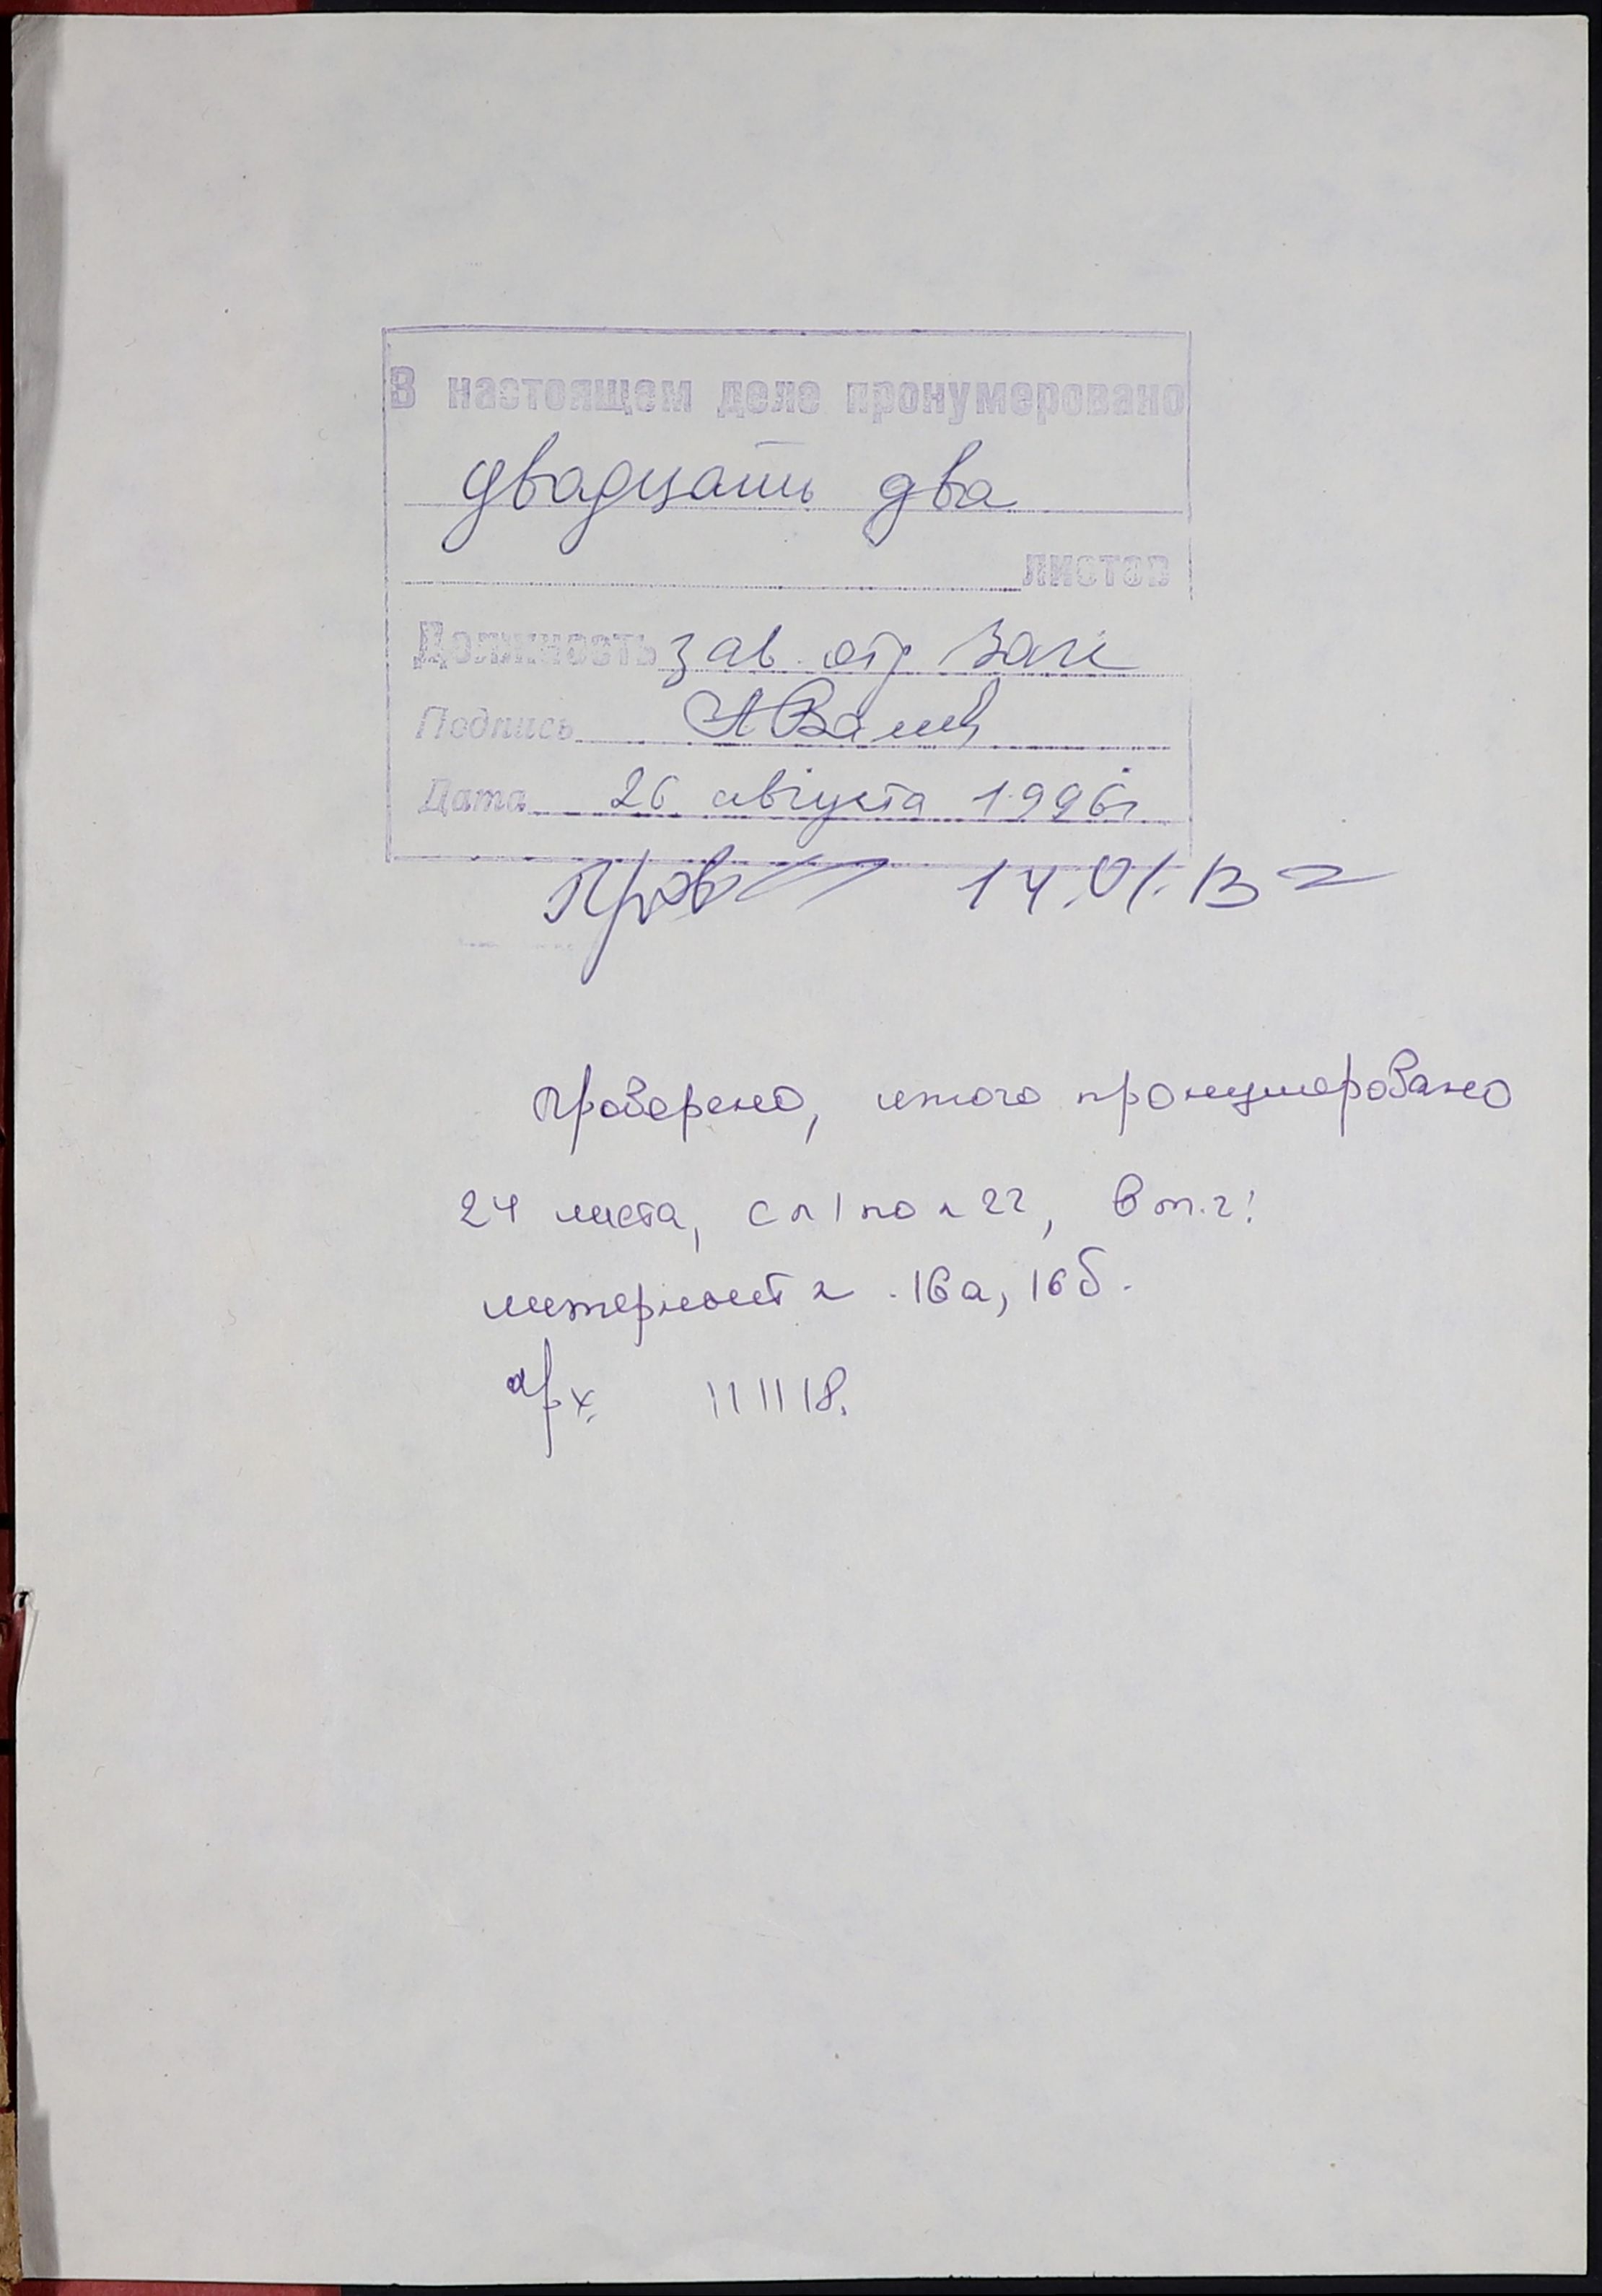 В настоящем деле пронумеровано
двадцать два
листов
Должность зав. отд.
Подпись
Дата 26 августа 1996г
Пров 14.01.13 г
Проверено, итого пронумеровано
24 листа, с л 1 по л 22, в т.ч:
литерные л. 16а, 16б.
арх. 11 11 18.